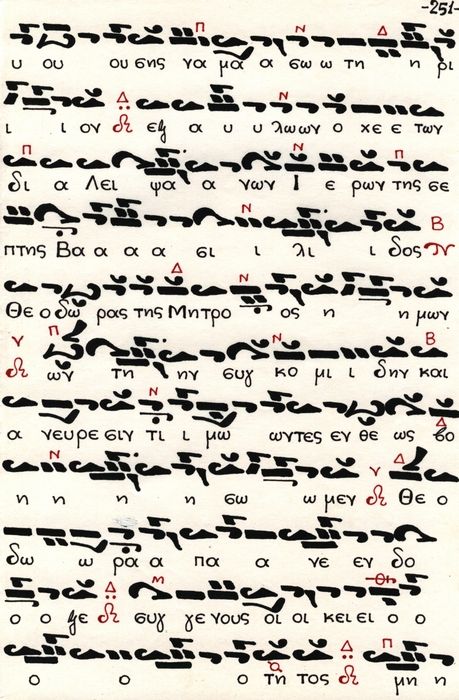 -251-
υ ου ου σης να μα α σω ω τη η ρι
ι ι ον εξ α υ υ λω ων ο χε ε των
δι α Λει ψα α α νων Ι ε ρων της σε
πτης Βα α α α σι ι λι ι δος
Θε ο δω ρας της Μητρο ος η η μων
ων τη ην συγ κο μι ι δην και
α νευ ρε σιν τι ι μω ω ντες εν θε ως βο
η η η η σω ω μεν Θε ο
δω ω ρα α πα α νε εν δο
ο ο ξε συγ γε νους οι οι κει ει ο ο
ο ο ο τη τος μη η